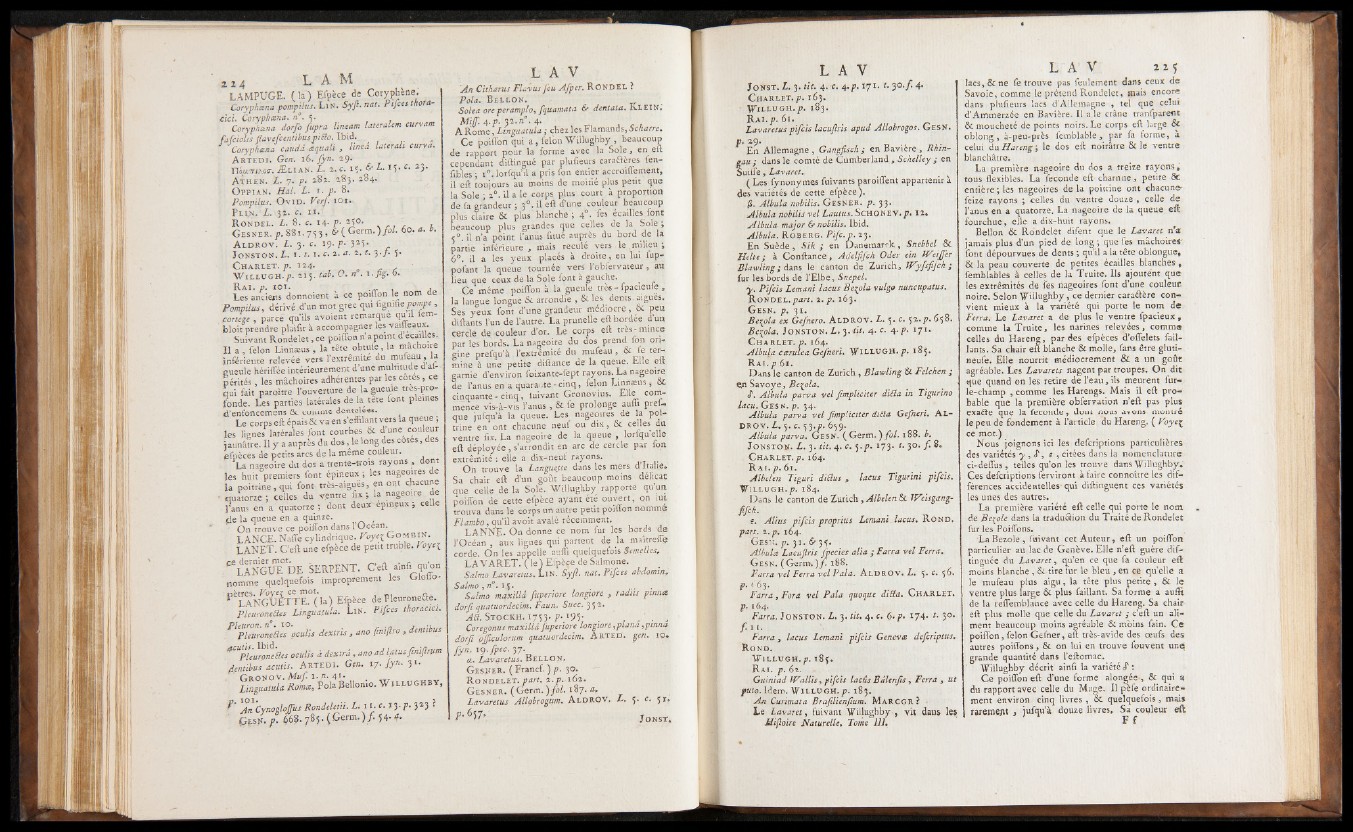 224 L A M
LAMPUGE. (la) Espèce de Coryphène.
Coryphæna pompilus. LIN. Syst. nat. Pisces thora-
cici. Coryphæna. n°. 5.
Coryphæna dorso supra lineam lateralem curvam
fasciolis flavescentibus picto. Ibid.
Coryphæna caudâ æquali, lineâ laterali curvâ.
ARTEDI. Gen. 16. syn. 29.
ÆLIAN. L. 2. c. 15. & L. 15. c. 23.
ATHEN. L. 7. p. 282. 283. 284.
OPPIAN. Hal. L. 1. p. 8.
Pompilus. OVID. Vers. 101.
PLIN. L. 32. c. 11.
RONDEL. L. 8. c. 14. p. 250.
GESNER. p. 881. 753. & (Germ.) fol. 60. a. b.
ALDROV. L. 3. c. 19. p. 325.
JONSTON. L. 1. t. 1. c. 2. a. 2. t. 3. f. 5.
CHARLET. p. 124.
WILLUGH. p. 215. tab. O. n°. 1. fig. 6.
RAI. p. 101.
Les anciens donnoient à ce poisson le nom de
Pompilus, dérivé d'un mot grec qui signifie pompe,
cortege, parce qu'ils avoient remarqué qu'il sem-
bloit prendre plaisir à accompagner les vaisseaux.
Suivant Rondelet, ce poisson n'a point d'écailles.
Il a, selon Linnæus, la tête obtuse, la mâchoire
inférieure relevée vers l'extrémité du museau, la
gueule hérissée intérieurement d'une multitude d'as-
pérités, les mâchoires adhérentes par les côtés, ce
qui fait paroître l'ouverture de la gueule très-pro-
fonde. Les parties latérales de la tête sont pleines
d'enfoncemens & comme dentelées.
Le corps est épais & va en s'effilant vers la queue;
les lignes latérales sont courbes & d'une couleur
jaunâtre. Il y a auprès du dos, le long des côtés, des
espèces de petits arcs de la même couleur.
La nageoire du dos a trente-trois rayons, dont
les huit premiers sont épineux; les nageoires de
la poitrine, qui sont très-aiguës, en ont chacune
quatorze; celles du ventre six; la nageoire de
l'anus en a quatorze; dont deux épineux; celle
de la queue en a quinze.
On trouve ce poisson dans l'Océan.
LANCE. Nasse cylindrique. Voyez GOMBIN.
LANET. C'est une espèce de petit truble. Voyez
ce dernier mot.
LANGUE DE SERPENT. C'est ainsi qu'on
nomme quelquefois improprement les Glosso-
pètres. Voyez ce mot.
LANGUETTE. (la) Espèce de Pleuronecte.
Pleuronectes Linguatula. LIN. Pisces thoracici.
Pleuron. n°. 10.
Pleuronectes oculis dextris, ano sinistro, dentibus
acutis. Ibid.
Pleuronectes oculis à dextrâ, ano ad latus sinistrum
dentibus acutis. ARTEDI. Gen. 17. syn. 31.
GRONOV. Mus. 1. n. 41.
Linguatula Romæ, Pola Bellonio. WILLUGHBY,
p. 101.
An Cynoglossus Rondeletii. L. 11. c. 13. p. 323?
GESN. p. 668. 785. (Germ.) f. 54. a.
L A V
An Citharus Flavus seu Asper. RONDEL?
Pola. BELLON.
Solea ore peramplo, squamata & dentata. KLEIN.
Miss. 4. p. 32. n°. 4.
A Rome, Linguatula; chez les Flamands, Scharre.
Ce poisson qui a, selon Willughby, beaucoup
de rapport pour la forme avec la Sole, en est
cependant distingué par plusieurs caractères sen-
sibles; 1°. lorsqu'il a pris son entier accroissement,
il est toujours au moins de moitié plus petit que
la Sole; 2°. il a le corps plus court à proportion
de sa grandeur; 3°. il est d'une couleur beaucoup
plus claire & plus blanche; 4°. ses écailles sont
beaucoup plus grandes que celles de la Sole;
5°. il n'a point l'anus situé auprès du bord de la
partie inférieure, mais reculé vers le milieu;
6°. il a les yeux placés à droite, en lui sup-
posant la queue tournée vers l'observateur, au
lieu que ceux de la Sole sont à gauche.
Ce même poisson à la gueule très-spacieuse,
la langue longue & arrondie, & les dents aiguës.
Ses yeux sont d'une grandeur médiocre, & peu
distans l'un de l'autre. La prunelle est bordée d'un
cercle de couleur d'or. Le corps est très-mince
par les bords. La nageoire du dos prend son ori-
gine presqu'à l'extrémité du museau, & se ter-
mine à une petite distance de la queue. Elle est
garnie d'environ soixante-sept rayons. La nageoire
de l'anus en a quarante-cinq, selon Linnæus, &
cinquante-cinq, suivant Gronovius. Elle com-
mence vis-à-vis l'anus, & se prolonge aussi pres-
que jusqu'à la queue. Les nageoires de la poi-
trine en ont chacune neuf ou dix, & celles du
ventre six. La nageoire de la queue, lorsqu'elle
est déployée, s'arrondit en arc de cercle par son
extrémité: elle a dix-neuf rayons.
On trouve la Languette dans les mers d'Italie.
Sa chair est d'un goût beaucoup moins délicat
que celle de la Sole. Willughby rapporte qu'un
poisson de cette espèce ayant été ouvert, on lui
trouva dans le corps un autre petit poisson nommé
Flambo, qu'il avoit avalé récemment.
LANNE. On donne ce nom sur les bords de
l'Océan, aux lignes qui partent de la maîtresse
corde. On les appelle aussi quelquefois Semelles.
LAVARET. (le) Espèce de Salmone.
Salmo Lavaretus. LIN. Syst. nat. Pisces abdomin.
Salmo, n°. 15.
Salmo maxillâ superiore longiore, radiis pinnæ
dorsi quatuordecim. Faun. Suec. 352.
Act. STOCKH. 1753. p. 195.
Coregonus maxillâ superiore longiore, planâ, pinnâ
dorsi ossiculorum quatuordecim. ARTED. gen. 10.
syn. 19. spec. 37.
α. Lavaretus. BELLON.
GESNER. (Francf.) p. 30.
RONDELET. part. 2. p. 162.
GESNER. (Germ.) fol. 187. a.
Lavaretus Allobrogum. ALDROV. L. 5. c. 51,
p. 657.
JONST.
L A V
JONST. L. 3. tit. 4. c. 4. p. 171. t. 30. f. 4.
CHARLET. p. 163.
WILLUGH. p. 183.
RAI. p. 61.
Lavaretus piscis lacustris apud Allobrogos. GESN.
p. 29.
En Allemagne, Gangfisch; en Bavière, Rhin-
gau; dans le comté de Cumberland, Schelley; en
Suisse, Lavaret.
(Les synonymes suivants paroissent appartenir à
des variétés de cette espèce).
β. Albula nobilis. GESNER. p. 33.
Albula nobilis vel Lautus. SCHONEV. p. 12.
Albula major & nobilis. Ibid.
Albula. ROBERG. Pisc. p. 23.
En Suède, Sik; en Danemarck, Snebbel &
Helte; à Constance, Adelfisch Oder ein Weisser
Blawling; dans le canton de Zurich, Wyssfisch;
sur les bords de l'Elbe, Snepel.
γ. Piscis Lemani lacus Bezola vulgo nuncupatus.
RONDEL. part. 2. p. 163.
GESN. p. 31.
Bezola ex Gesnero. ALDROV. L. 5. c. 52. p. 658.
Bezola. JONSTON. L. 3. tit. 4. c. 4. p. 171.
CHARLET. p. 164.
Albula cærulea Gesneri. WILLUGH. p. 185.
RAI. p. 61.
Dans le canton de Zurich, Blawling & Felchen;
en Savoye, Bezola.
δ. Albula parva vel simpliciter dicta in Tigurino
lacu. GESN. p. 34.
Albula parva vel simpliciter dicta Gesneri. AL-
DROV. L. 5. c. 53. p. 659.
Albula parva. GESN. (Germ.) fol. 188. b.
JONSTON. L. 3. tit. 4. c. 5. p. 173. t. 30. f. 8.
CHARLET. p. 164.
RAI. p. 61.
Albelen Tiguri dictus, lacus Tigurini piscis.
WILLUGH. p. 184.
Dans le canton de Zurich, Albelen & Weisgang-
fisch.
ε. Alius piscis proprius Lemani lacus. ROND.
part. 2. p. 164.
GESN. p. 32. & 35.
Albula Lacustris species alia; Farra vel Ferra.
GESN. (Germ.) f. 188.
Farra vel Ferra vel Pala. ALDROV. L. 5. c. 56.
p. 663.
Farra, Fora vel Pala quoque dicta. CHARLET.
p. 164.
Farra. JONSTON. L. 3. tit. 4. c. 6. p. 174. t. 30.
f. 11.
Farra, lacus Lemani piscis Genevæ descriptus.
ROND.
WILLUGH. p. 185.
RAI. p. 62.
Guiniad Wallis, piscis lactis Balensis, Ferra, ut
puto. Idem. WILLUGH. p. 183.
An Curimata Brasiliensium. MARCGR?
Le Lavaret, suivant Willughby, vit dans les
Histoire Naturelle. Tome III.
L A V 225
lacs, & ne se trouve pas seulement dans ceux de
Savoie, comme le prétend Rondelet, mais encore
dans plusieurs lacs d'Allemagne, tel que celui
d'Ammerzée en Bavière. Il a le crâne transparent
& moucheté de points noirs. Le corps est large &
oblong, à-peu-près semblable, par sa forme, à
celui du Hareng; le dos est noirâtre & le ventre
blanchâtre.
La première nageoire du dos a treize rayons,
tous flexibles. La seconde est charnue, petite &
entière; les nageoires de la poitrine ont chacune
seize rayons; celles du ventre douze, celle de
l'anus en a quatorze. La nageoire de la queue est
fourchue, elle a dix-huit rayons.
Bellon & Rondelet disent que le Lavaret n'a
jamais plus d'un pied de long; que ses mâchoires
sont dépourvues de dents; qu'il a la tête oblongue,
& la peau couverte de petites écailles blanches,
semblables à celles de la Truite. Ils ajoutent que
les extrémités de ses nageoires sont d'une couleur
noire. Selon Willughby, ce dernier caractère con-
vient mieux à la variété qui porte le nom de
Ferra. Le Lavaret a de plus le ventre spacieux,
comme la Truite, les narines relevées, comme
celles du Hareng, par des espèces d'osselets sail-
lants. Sa chair est blanche & molle, sans être gluti-
neuse. Elle nourrit médiocrement & a un goût
agréable. Les Lavarets nagent par troupes. On dit
que quand on les retire de l'eau, ils meurent sur-
le-champ, comme les Harengs. Mais il est pro-
bable que la première observation n'est pas plus
exacte que la seconde, dont nous avons montré
le peu de fondement à l'article du Hareng. (Voyez
ce mot.)
Nous joignons ici les descriptions particulières
des variétés γ, δ, ε, citées dans la nomenclature
ci-dessus, telles qu'on les trouve dans Willughby.
Ces descriptions serviront à faire connoître les dif-
férences accidentelles qui distinguent ces variétés
les unes des autres.
La première variété est celle qui porte le nom
de Bezole dans la traduction du Traité de Rondelet
sur les Poissons.
La Bezole, suivant cet Auteur, est un poisson
particulier au lac de Genève. Elle n'est guère dis-
tinguée du Lavaret, qu'en ce que sa couleur est
moins blanche, & tire sur le bleu, en ce qu'elle a
le museau plus aigu, la tête plus petite, & le
ventre plus large & plus saillant. Sa forme a aussi
de la ressemblance avec celle du Hareng. Sa chair
est plus molle que celle du Lavaret; c'est un ali-
ment beaucoup moins agréable & moins sain. Ce
poisson, selon Gesner, est très-avide des œufs des
autres poissons, & on lui en trouve souvent une
grande quantité dans l'estomac.
Willughby décrit ainsi la variété δ:
Ce poisson est d'une forme alongée, & qui a
du rapport avec celle du Muge. Il pèse ordinaire-
ment environ cinq livres, & quelquefois, mais
rarement, jusqu'à douze livres. Sa couleur est
F f